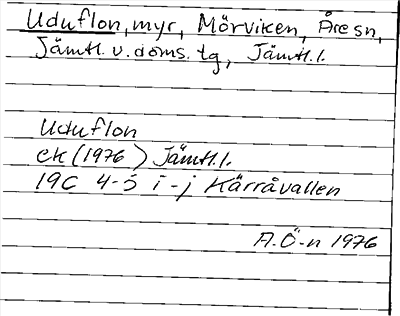 Uduflon, myr, Mörviken, Åre sn,
Jämtl. v. doms. tg, Jämtl. l.
Uduflon
ek (1976) Jämtl. l.
19C 4-5 i-j Kärråvallen
A. Ö-n 1976